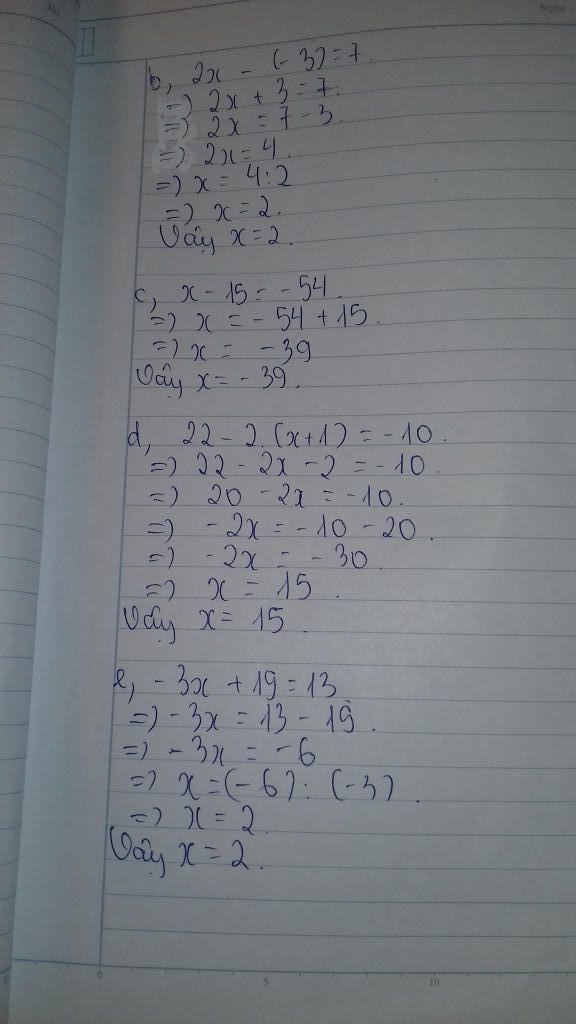 No.
Ngày
b, 2x - (-3) = 7.
=) 2x + 3 = 7.
=) 2x = 7 - 3.
=) 2x = 4.
=) x = 4 : 2
=) x = 2.
Vậy x = 2.
c, x - 15 = - 54.
=) x = - 54 + 15.
=) x = - 39
Vậy x = - 39.
d, 22 - 2. (x+1) = - 10.
=) 22 - 2x - 2 = - 10.
=) 20 - 2x = - 10.
=) - 2x = - 10 - 20.
=) - 2x = - 30.
=) x = 15.
Vậy x = 15.
e, - 3x + 19 = 13.
=) - 3x = 13 - 19.
=) - 3x = - 6
=) x = (- 6) : (- 3).
=) x = 2.
Vậy x = 2.
0 5 10